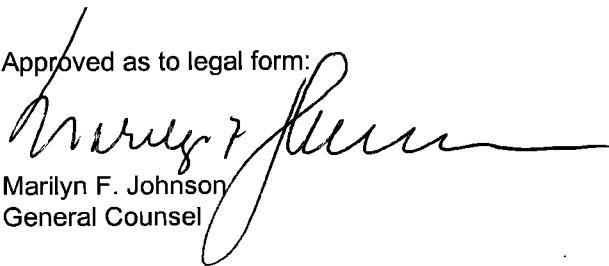 Approved as to legal form:
Marilyn F Johnson
Marilyn F. Johnson
General Counsel